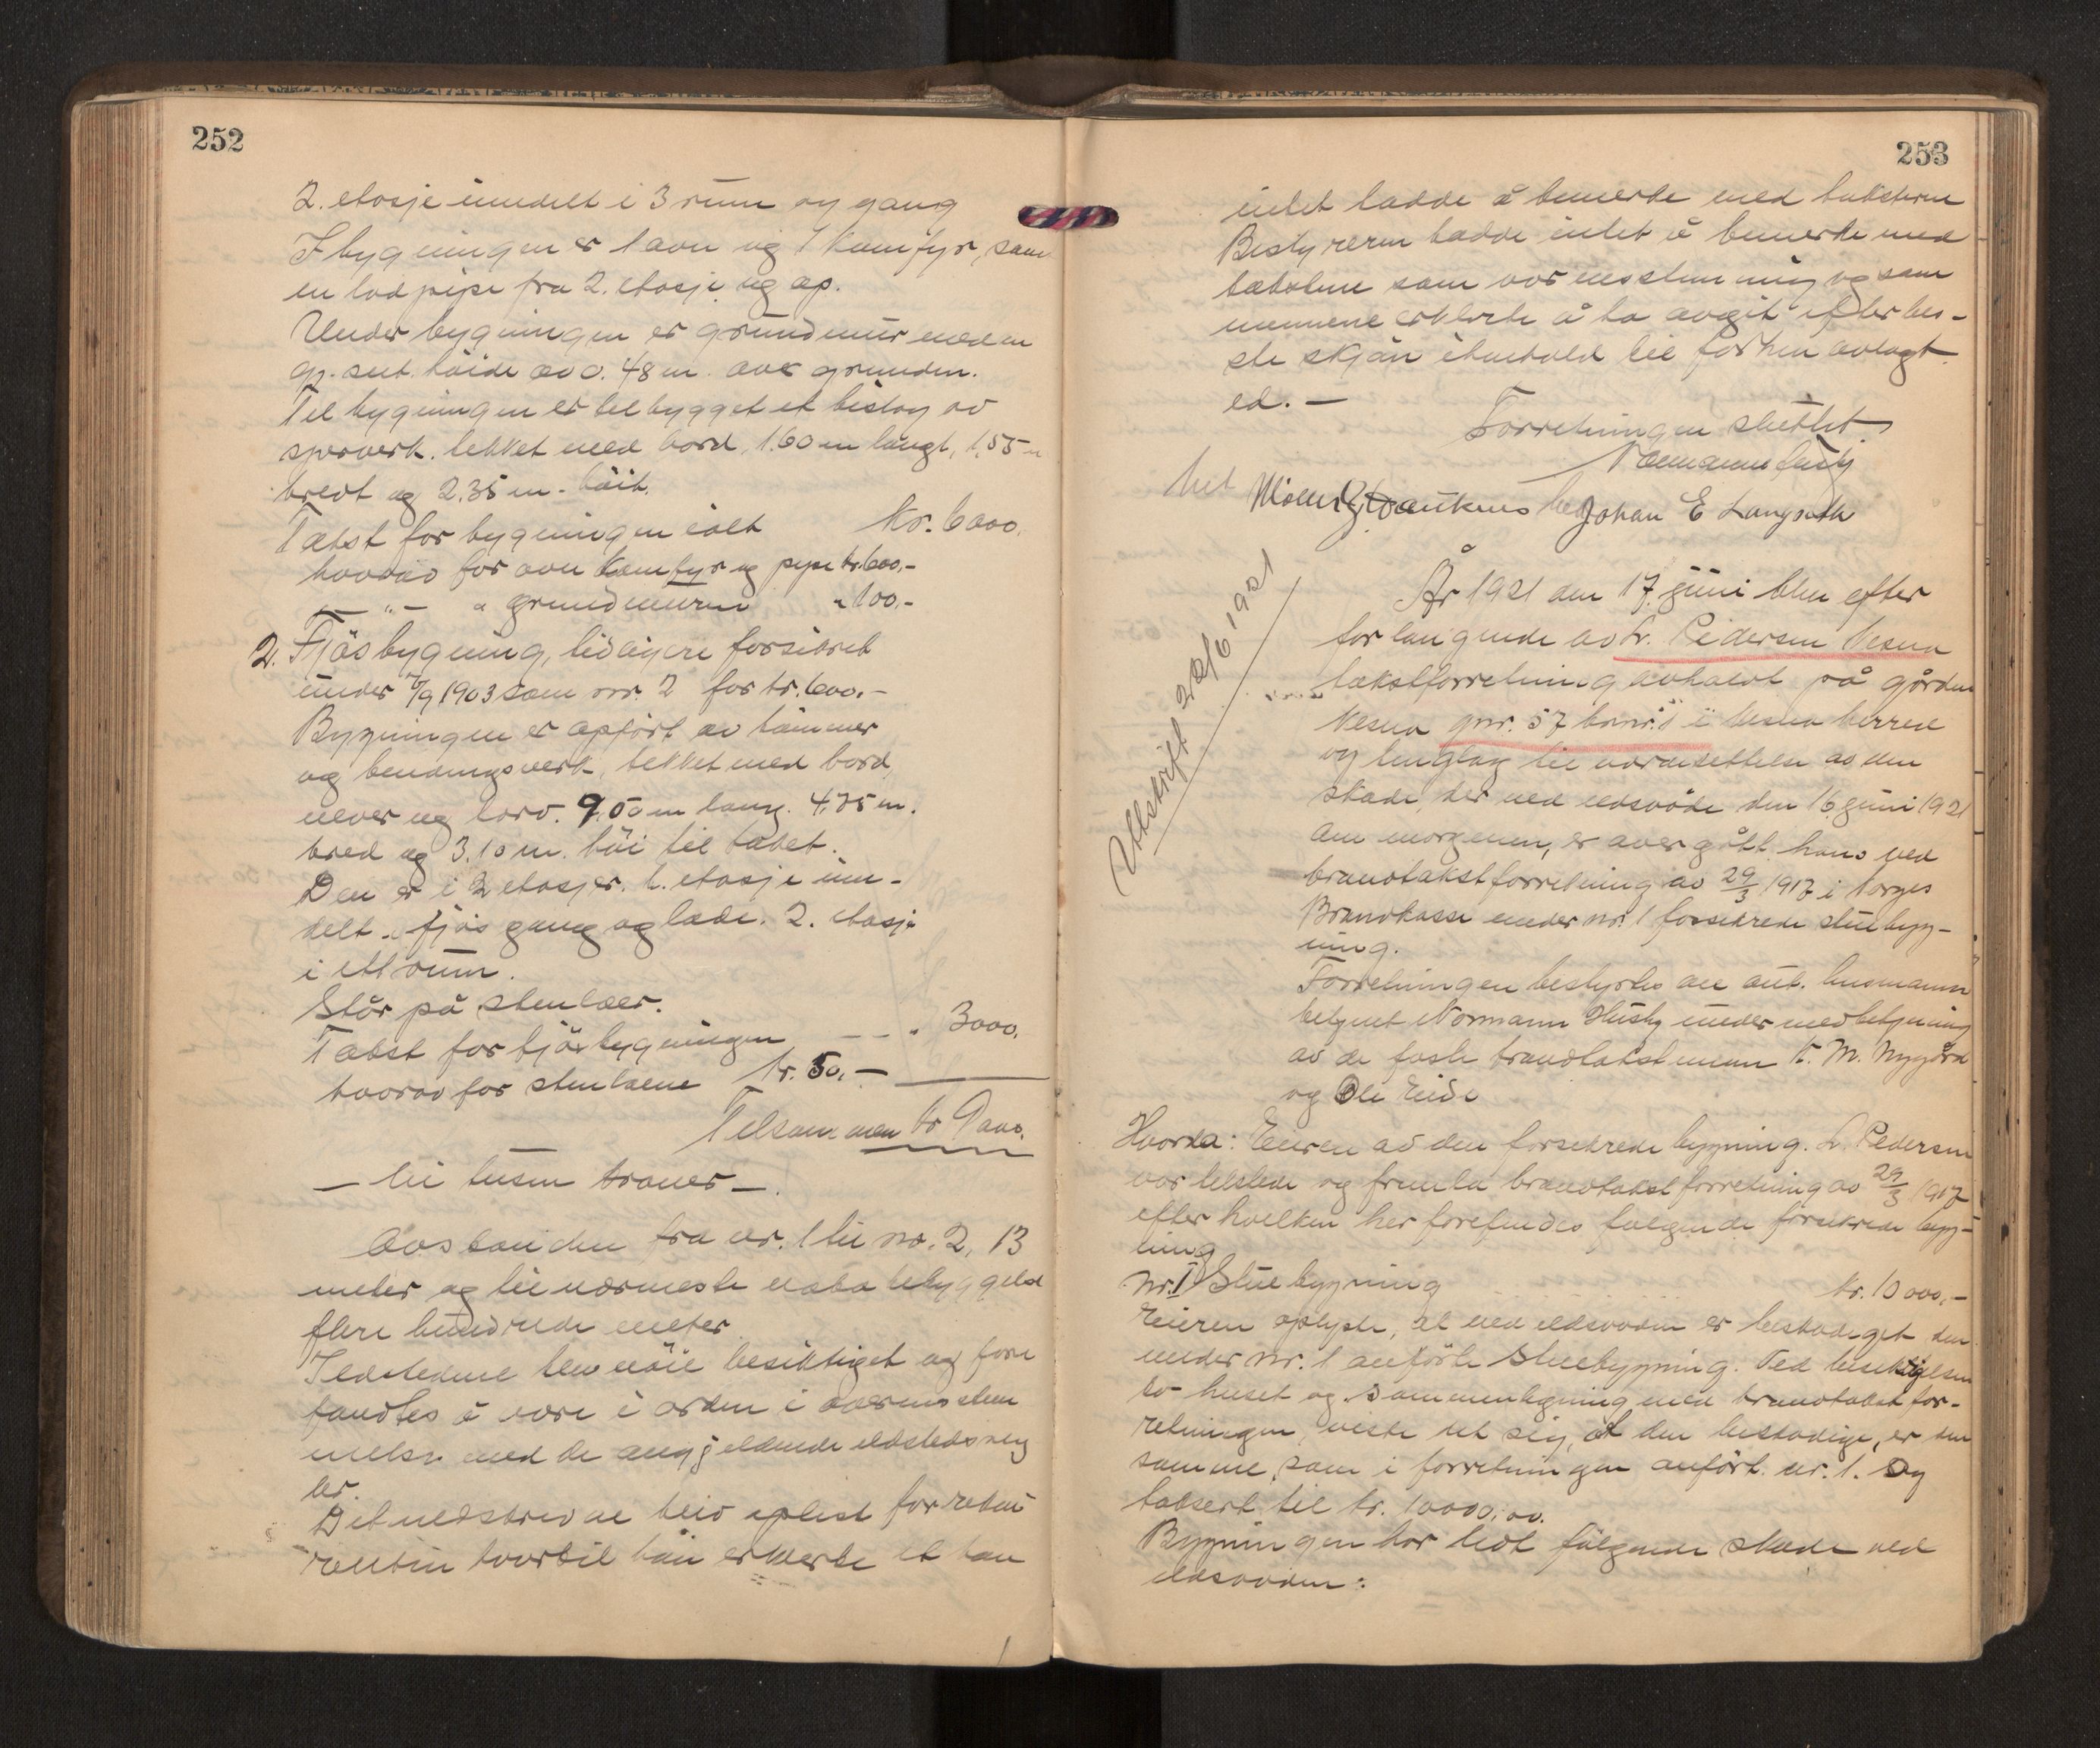 252
2. etasje inndelt i 3 rum og gang
I bygningen er 1 ovn og 1 komfyr, samt
en lodpipe fra 2. etasje og op.
Under bygningen er grundmur med en
gj. snt. höide av 0.48 m over grunden.
Til bygningen er tilbygget et bislag av
sperverk, tekket med bord, 1.60 m langt, 1,55 m
bredt og 2,35 m. höit.
Takst for bygningen ialt Kr. 6000,
hvorav for ovn komfyr og pipe kr. 600,-
— " — " grundmuren " 100,-
2. Fjösbygning, tidligere forsikret
under 5/9 1903 som nr. 2 for kr. 600.-
Bygningen er opfört av tömmer
og bendingsverk, tekket med bord,
never og torv. 9,00 m lang. 4,75 m.
bred og 3.10 m. höi til taket.
Den er i 2 etasjer. 1. etasje inn-
delt i fjös gang og lade. 2. etasje
i ett rum.
Står på stenlaer.
Takst for fjösbygningen — — " 3000.
hvorav for stenlaene kr. 50,-
Tilsammen kr 9000.
— Ni tusen kroner —.
Avstanden fra nr. 1 til nr. 2, 13
meter og til nærmeste nabo bebyggelse
flere hundrede meter.
Ildstedene blev nöie besiktiget og fore
fandtes å være i orden i overensstem
melse med de angjeldende ildstedsreg
ler.
Det nedskrevne blev oplest for rekvi
renten hvortil han erklærte at han
253
intet hadde å bemerke med taksterne
Bestyreren hadde intet å bemerke med
takstene som var enstemmig og som
mennene erklærte å ha avgit efter bes-
te skjön i henhold til forhen avlagt
ed. —
Forretningen sluttet
Normann Husby
Johan E Langseth
Utskrift 22/6 1921
År 1921 den 17. juni blev efter
forlangende av L. Pedersen Vesna
takstforretning avholdt på gården
Nesna gnr. 57 bnr. 1 i Nesna herred
og tinglag til værdsettelse av den
skade, der ved ildsvåde den 16. juni 1921
om morgenen, er overgått hans ved
brandtakstforretning av 29/3 1917 i Norges
Brandkasse under nr. 1 forsikrede stuebyg-
ning.
Forretningen bestyrtes av aut. lensmanns
betjent Normann Husby under medbetjening
av de faste brandtakstmenn K. M. Nygård
og Ole Eide
Hvorda: Eieren av den forsikrede bygning. L. Pedersen
var tilstede og fremla brandtakstforretning av 29/3 1917
efter hvilken her forefindes fölgende forsikrede byg-
ning
Nr. 1 Stuebygning kr. 10 000,-
Eieren oplyste, at ved ildsvåden er beskadiget den
under nr. 1 anförte Stuebygning. Ved besiktigelsen
av huset og sammenligning med brandtakst for-
retningen, viste det sig, at den beskadige, er den
samme, som i forretningen anfört nr. 1. Og
taksert til kr. 10000,00.
Bygningen har lidt fölgende skade ved
ildsvåden: